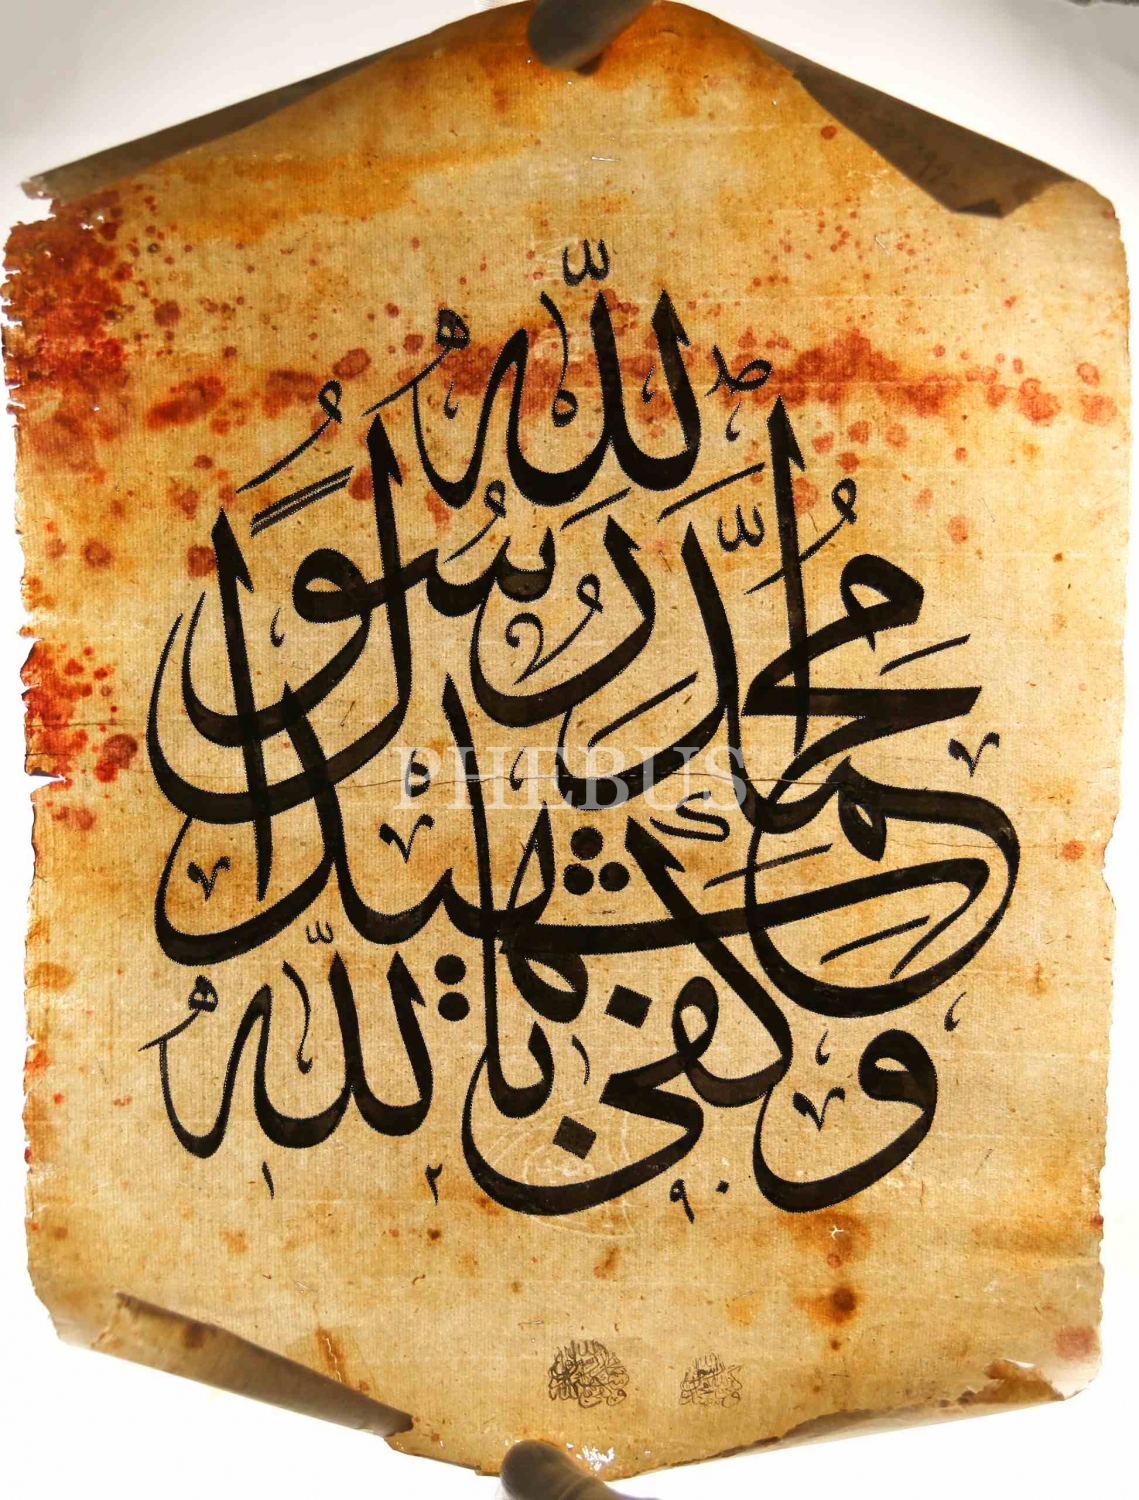 وكفى بالله شهيدا
محمد رسول الله
١٢٩٠
PHEBUS